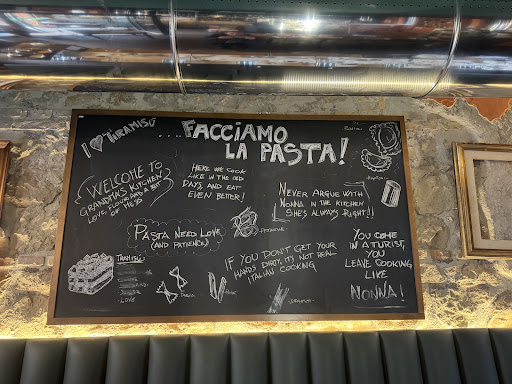 I ♥ TIRAMISÚ
....FACCIAMO
LA PASTA!
WELCOME TO
GRANDMA'S KITCHEN
LOVE, FLOUR AND A BIT
OF MESS
HERE WE COOK
LIKE IN THE OLD
DAYS, AND EAT
EVEN BETTER!
NEVER ARGUE WITH
NONNA IN THE KITCHEN
SHE'S ALWAYS RIGHT!!
PASTA NEED LOVE
(AND PATIENCE)
TIRAMISÚ
LOVE
IF YOU DON'T GET YOUR
HANDS DIRTY, IT'S NOT REAL
ITALIAN COOKING
YOU COME
IN A TURIST,
YOU
LEAVE COOKING
LIKE
NONNA!